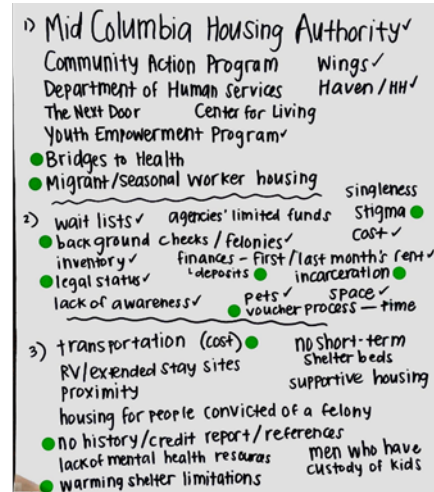 1) Mid Columbia Housing Authority✓
Community Action Program Wings✓
Department of Human Services Haven/HH✓
The Next Door Center for Living
Youth Empowerment Program✓
Bridges to Health
Migrant/seasonal worker housing
singleness
2) wait lists✓ agencies' limited funds stigma
background checks/felonies✓ cost✓
inventory✓ finances - first/last month's rent✓
legal status✓ deposits incarceration
lack of awareness✓ pets✓ space✓
voucher process — time
3) transportation (cost) no short-term
shelter beds
RV/extended stay sites
proximity supportive housing
housing for people convicted of a felony
no history/credit report/references
lack of mental health resources men who have
custody of kids
warming shelter limitations